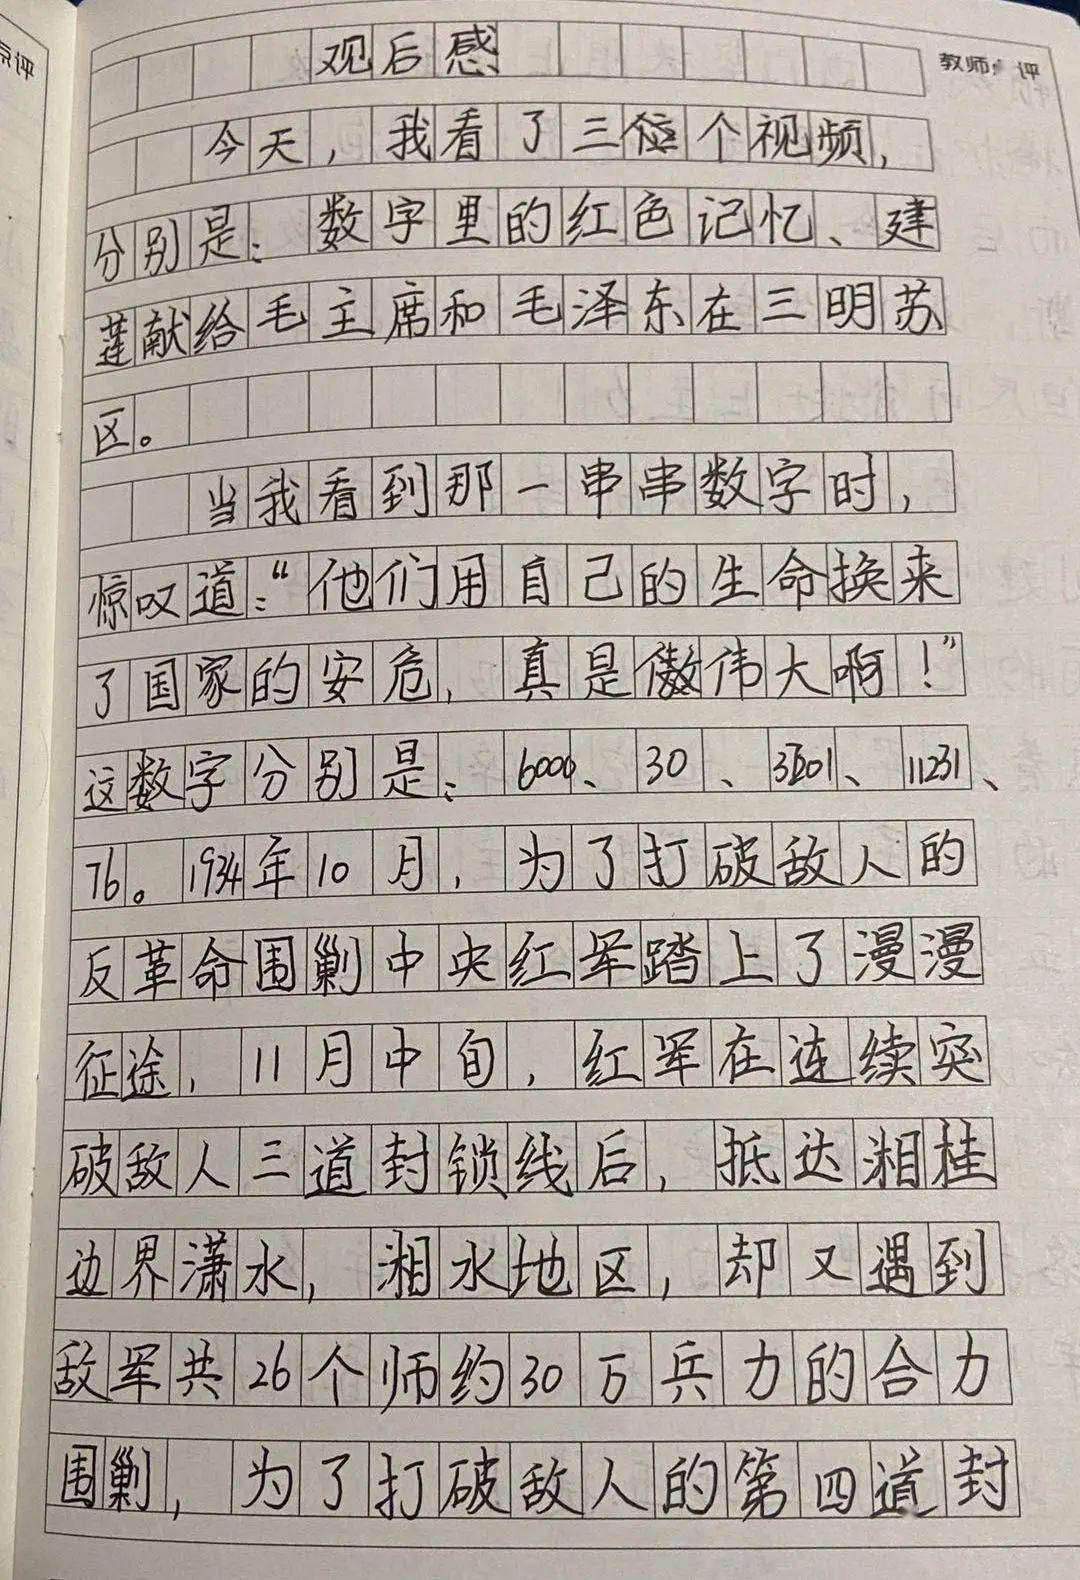 观后感
教师 评
今天，我看了三个视频，
分别是：数字里的红色记忆、建
莲献给毛主席和毛泽东在三明苏
区。
当我看到那一串串数字时，
惊叹道：“他们用自己的生命换来
了国家的安危，真是伟大啊！”
这数字分别是：6000、30、3201、11231、
76。1934年10月，为了打破敌人的
反革命围剿中央红军踏上了漫漫
征途，11月中旬，红军在连续突
破敌人三道封锁线后，抵达湘桂
边界潇水，湘水地区，却又遇到
敌军共26个师约30万兵力的合力
围剿，为了打破敌人的第四道封